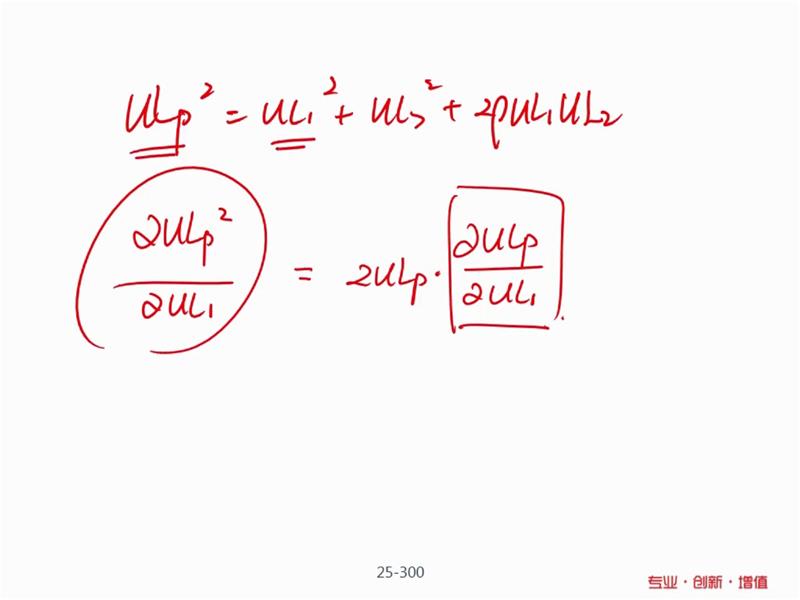 ULp² = UL₁² + UL₂² + 2ρUL₁UL₂
∂ULp² / ∂UL₁ = 2ULp · ∂ULp / ∂UL₁.
25-300
专业·创新·增值